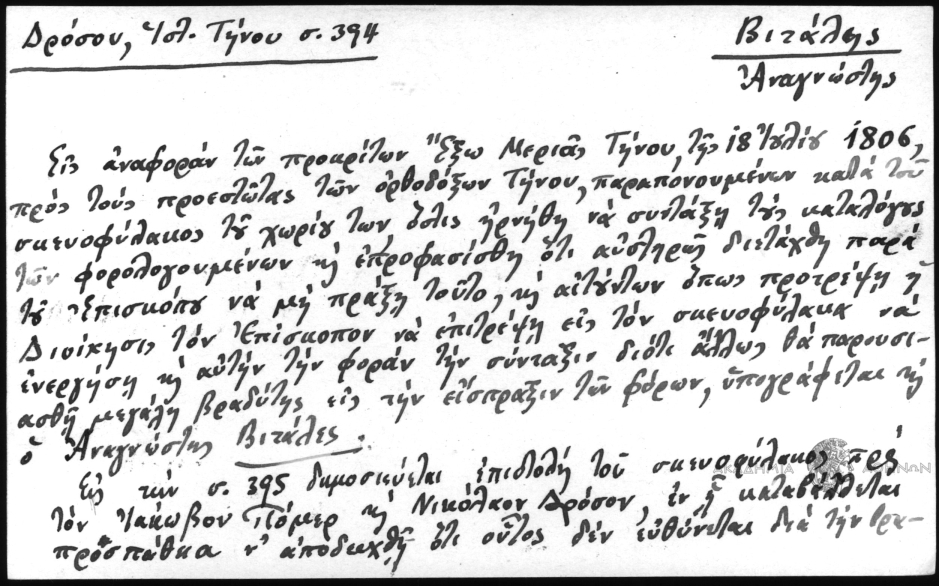 Δρόσου, Ἱστ. Τήνου σ. 394
Βιτάλης
Ἀναγνώστης
Εἰς ἀναφορὰν τῶν προκρίτων Ἔξω Μεριᾶς Τήνου, τῆς 18 Ἰουλίου 1806,
πρὸς τοὺς προεστῶτας τῶν ὀρθοδόξων Τήνου, παραπονουμένων κατὰ τοῦ
σκευοφύλακος τοῦ χωρίου των ὅστις ἠρνήθη νὰ συντάξῃ τοὺς καταλόγους
τῶν φορολογουμένων καὶ ἐπροφασίσθη ὅτι αὐστηρῶς διετάχθη παρὰ
τοῦ Ἐπισκόπου νὰ μὴ πράξῃ τοῦτο, καὶ αἰτούντων ὅπως προτρέψῃ ἡ
Διοίκησις τὸν Ἐπίσκοπον νὰ ἐπιτρέψῃ εἰς τὸν σκευοφύλακα νὰ
ἐνεργήσῃ καὶ αὐτὴν τὴν φορὰν τὴν σύνταξιν διότι ἄλλως θὰ παρουσι-
ασθῇ μεγάλη βραδύτης εἰς τὴν εἴσπραξιν τῶν φόρων, ὑπογράφεται καὶ
ὁ Ἀναγνώστης Βιτάλες.
Εἰς τὴν σ. 395 δημοσιεύεται ἐπιστολὴ τοῦ σκευοφύλακος πρὸς
τὸν Ἰάκωβον Πόμερ καὶ Νικόλαον Δρόσον, ἐν ᾗ καταβάλλεται
προσπάθεια ν' ἀποδειχθῇ ὅτι οὗτος δὲν εὐθύνεται διὰ τὴν βρα-
ΑΚΑΔΗΜΙΑ ΑΘΗΝΩΝ